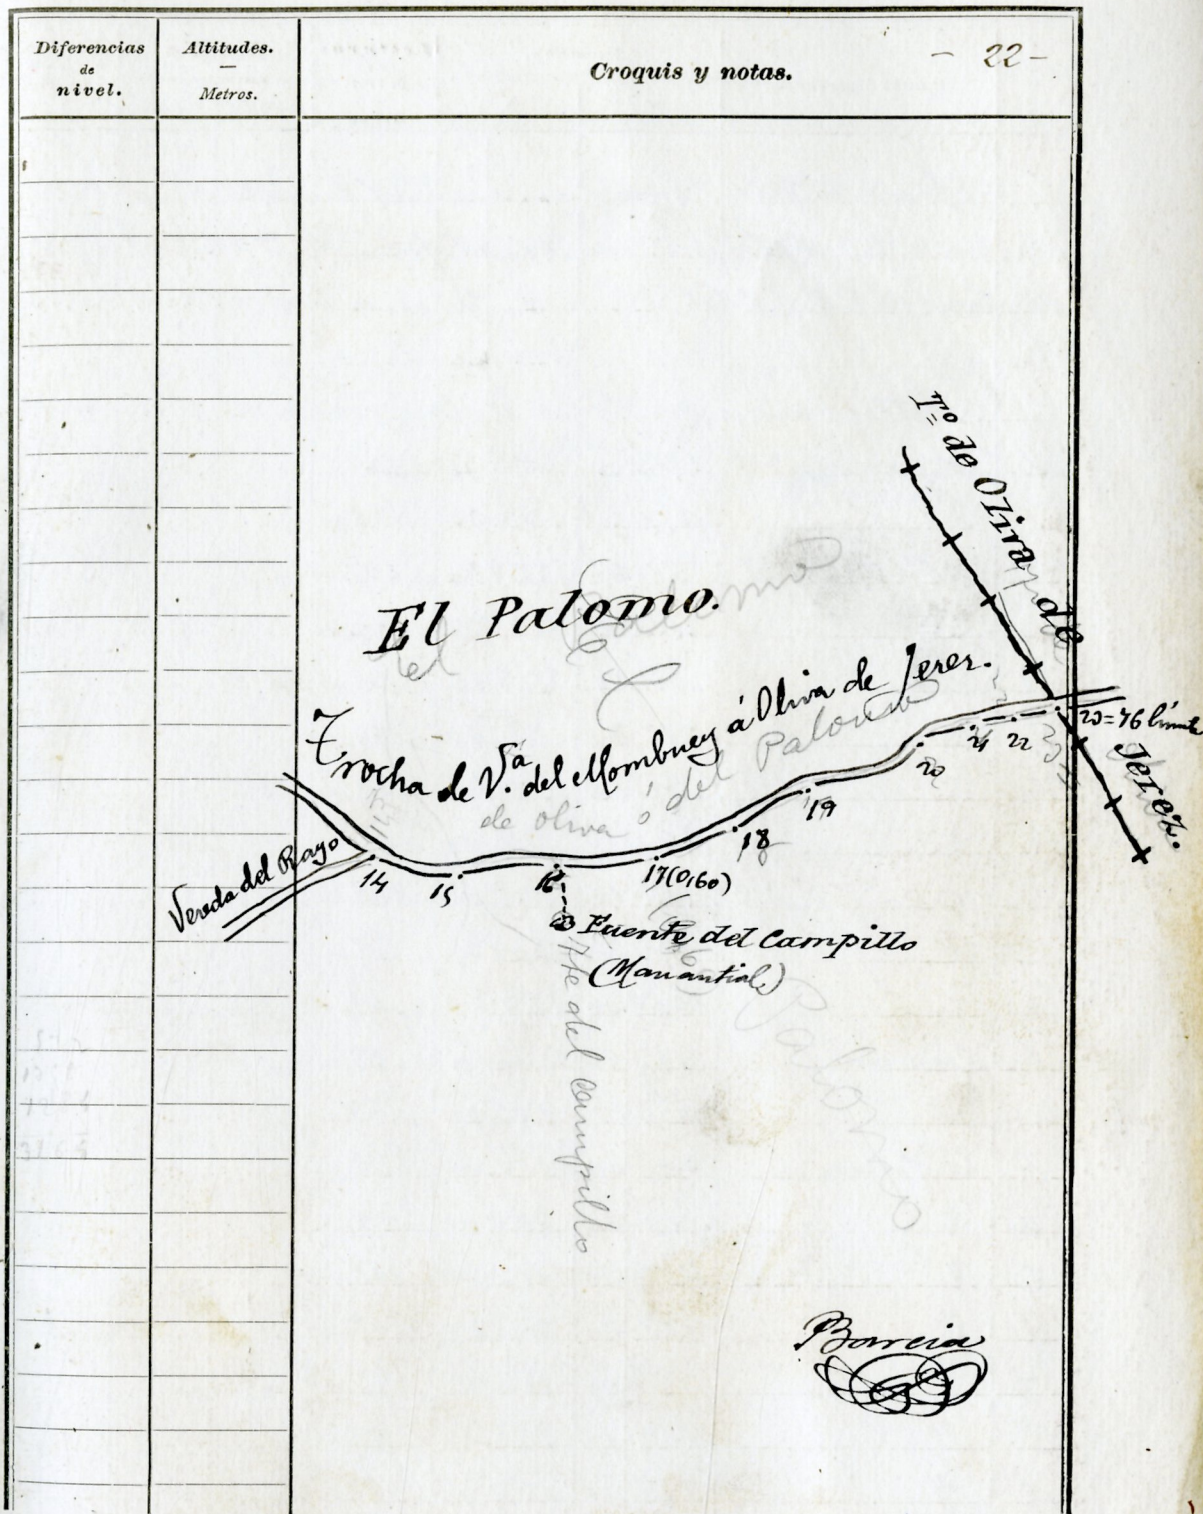 Diferencias
de
nivel.
Altitudes.
Metros.
Croquis y notas.
- 22 -
Tº de Oliva de Jerez.
El Palomo.
El Palomo
Trocha de Vª. del Mombuey á Oliva de Jerez.
de oliva ó del Palomo
Vereda del Rayo
14
15
16
17(0,60)
18
19
20
21
22
23=76 límite
Fuente del Campillo
(Manantial)
Fte del Campillo
Palomo
Barcia